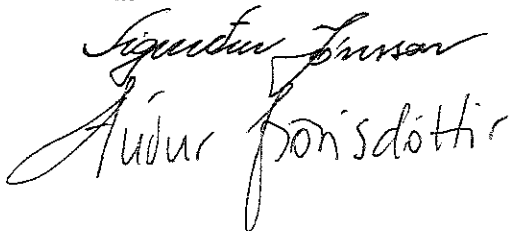 Sigurður Jónsson
Auður Þórisdóttir